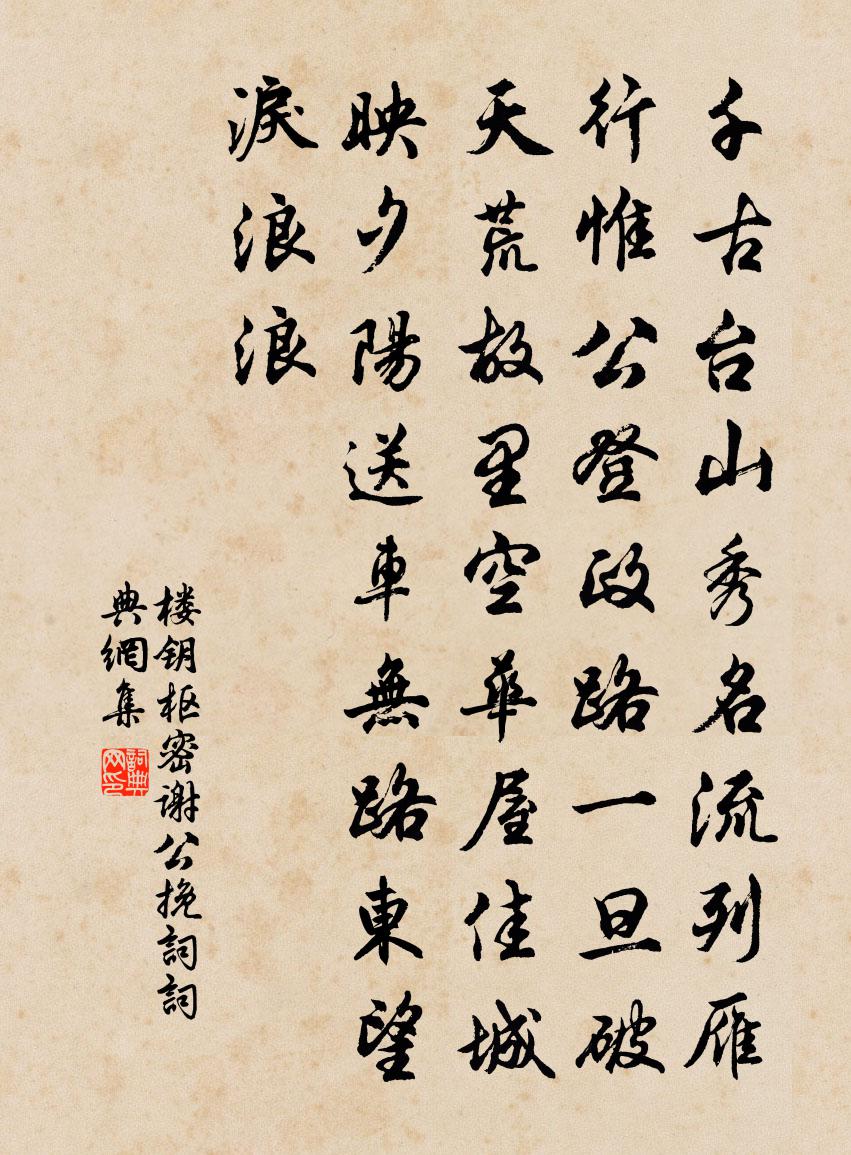 千古台山秀名流列雁
行惟公登政路一旦破
天荒故里空華屋佳城
映夕陽送車無路東望
淚浪浪
楼钥枢密谢公挽詞詞
典網集
詞典网印